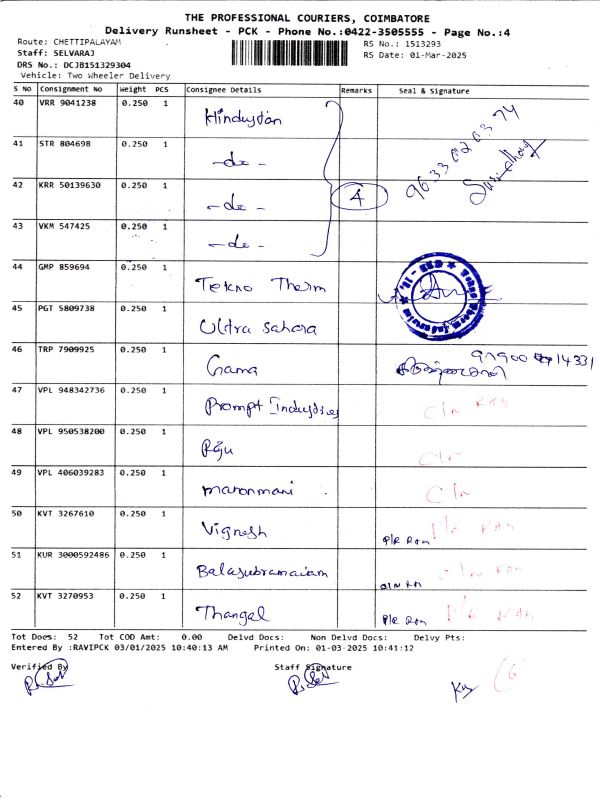 THE PROFESSIONAL COURIERS, COIMBATORE
Delivery Runsheet - PCK - Phone No.:0422-3505555 - Page No.:4
Route: CHETTIPALAYAM
RS No.: 1513293
Staff: SELVARAJ
RS Date: 01-Mar-2025
DRS No.: DCJB151329304
Vehicle: Two Wheeler Delivery
S No Consignment No Weight PCS Consignee Details Remarks Seal & Signature
40 VRR 9041238 0.250 1 Hindustan
41 STR 804698 0.250 1 -do-
42 KRR 50139630 0.250 1 -do- 4
43 VKM 547425 0.250 1 -do-
44 GMP 859694 0.250 1 Tekno Therm
45 PGT 5809738 0.250 1 Ultra Sahara
46 TRP 7909925 0.250 1 Gama
47 VPL 948342736 0.250 1 Prompt Industries
48 VPL 950538200 0.250 1 Raju
49 VPL 406039283 0.250 1 manonmani
50 KVT 3267610 0.250 1 Vignesh
51 KUR 3000592486 0.250 1 Balasubramaiam
52 KVT 3270953 0.250 1 Thangal
Tot Docs: 52 Tot COD Amt: 0.00 Delvd Docs: Non Delvd Docs: Delvy Pts:
Entered By :RAVIPCK 03/01/2025 10:40:13 AM Printed On: 01-03-2025 10:41:12
Verified By Staff Signature